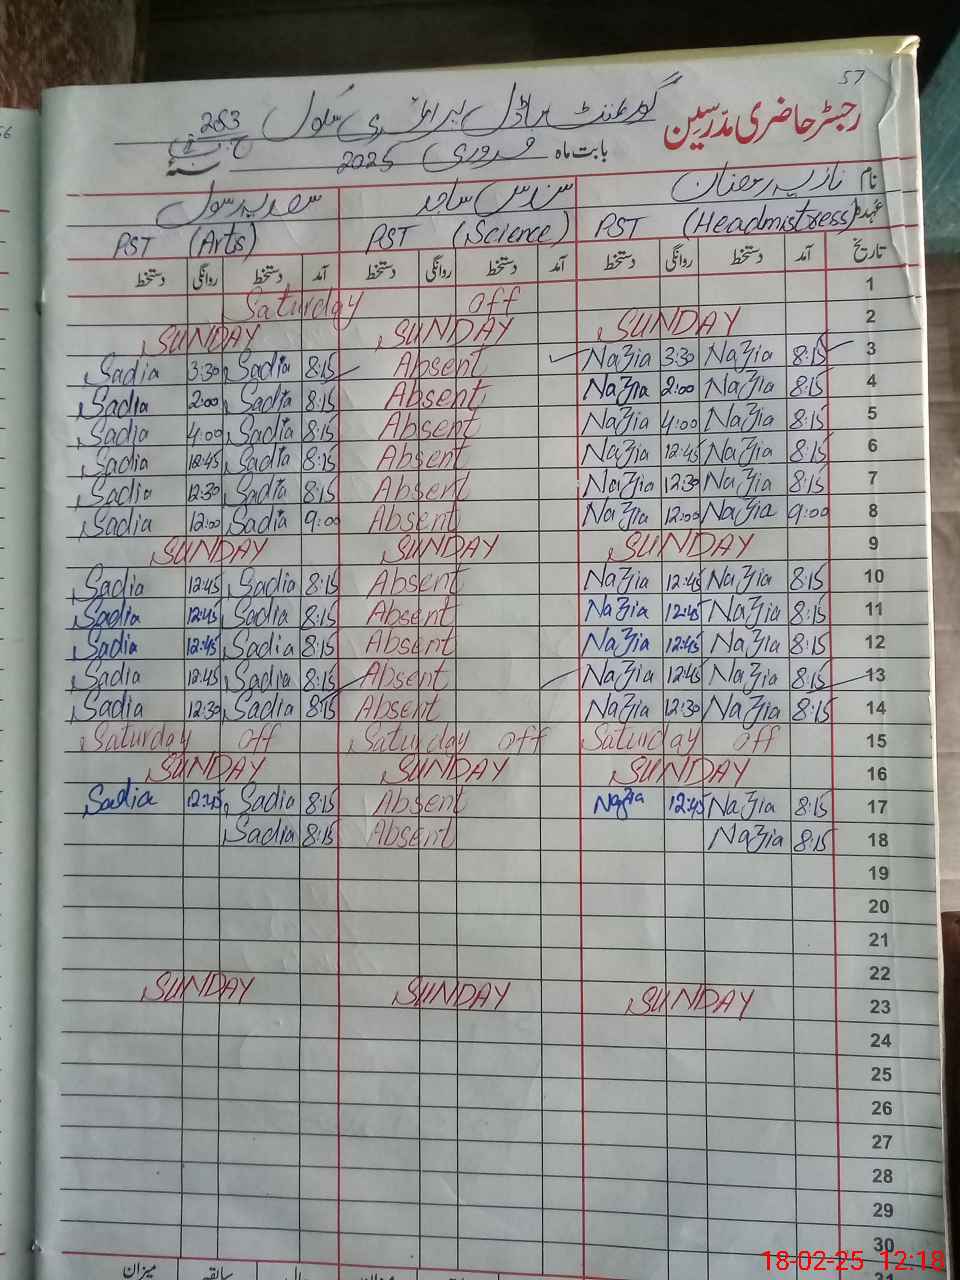 57
رجسٹر حاضری مدرسین
گورنمنٹ ماڈل پرائمری سکول 283
بابت ماہ فروری 2025
نام نازیہ رمضان سندس ساجد سعدیہ رسول
عہدہ PST (Headmistress) PST (Science) PST (Arts)
تاریخ آمد دستخط روانگی دستخط آمد دستخط روانگی دستخط آمد دستخط روانگی دستخط
Saturday off 1
SUNDAY SUNDAY SUNDAY 2
Sadia 3:30 Sadia 8:15 Absent Nazia 3:30 Nazia 8:15 3
Sadia 2:00 Sadia 8:15 Absent Nazia 2:00 Nazia 8:15 4
Sadia 4:00 Sadia 8:15 Absent Nazia 4:00 Nazia 8:15 5
Sadia 12:45 Sadia 8:15 Absent Nazia 12:45 Nazia 8:15 6
Sadia 12:30 Sadia 8:15 Absent Nazia 12:30 Nazia 8:15 7
Sadia 12:00 Sadia 9:00 Absent Nazia 12:00 Nazia 9:00 8
SUNDAY SUNDAY SUNDAY 9
Sadia 12:45 Sadia 8:15 Absent Nazia 12:45 Nazia 8:15 10
Sadia 12:45 Sadia 8:15 Absent Nazia 12:45 Nazia 8:15 11
Sadia 12:45 Sadia 8:15 Absent Nazia 12:45 Nazia 8:15 12
Sadia 12:45 Sadia 8:15 Absent Nazia 12:45 Nazia 8:15 13
Sadia 12:30 Sadia 8:15 Absent Nazia 12:30 Nazia 8:15 14
Saturday off Saturday off Saturday off 15
SUNDAY SUNDAY SUNDAY 16
Sadia 12:45 Sadia 8:15 Absent Nazia 12:45 Nazia 8:15 17
Sadia 8:15 Absent Nazia 8:15 18
19
20
21
22
SUNDAY SUNDAY SUNDAY 23
24
25
26
27
28
29
30
میزان سابقہ
18-02-25 12:18